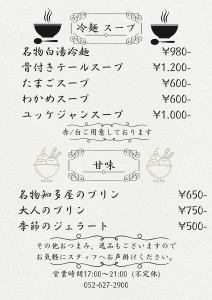 冷麺 スープ
名物白湯冷麺 ¥980-
骨付きテールスープ ¥1.200-
たまごスープ ¥600-
わかめスープ ¥600-
ユッケジャンスープ ¥1.000-
赤/白ご用意しております
甘味
名物知多屋のプリン ¥650-
大人のプリン ¥750-
季節のジェラート ¥500-
その他おつまみ、逸品もございますので
お気軽にスタッフへお声掛けください。
営業時間17:00〜21:00 (不定休)
052-627-2900